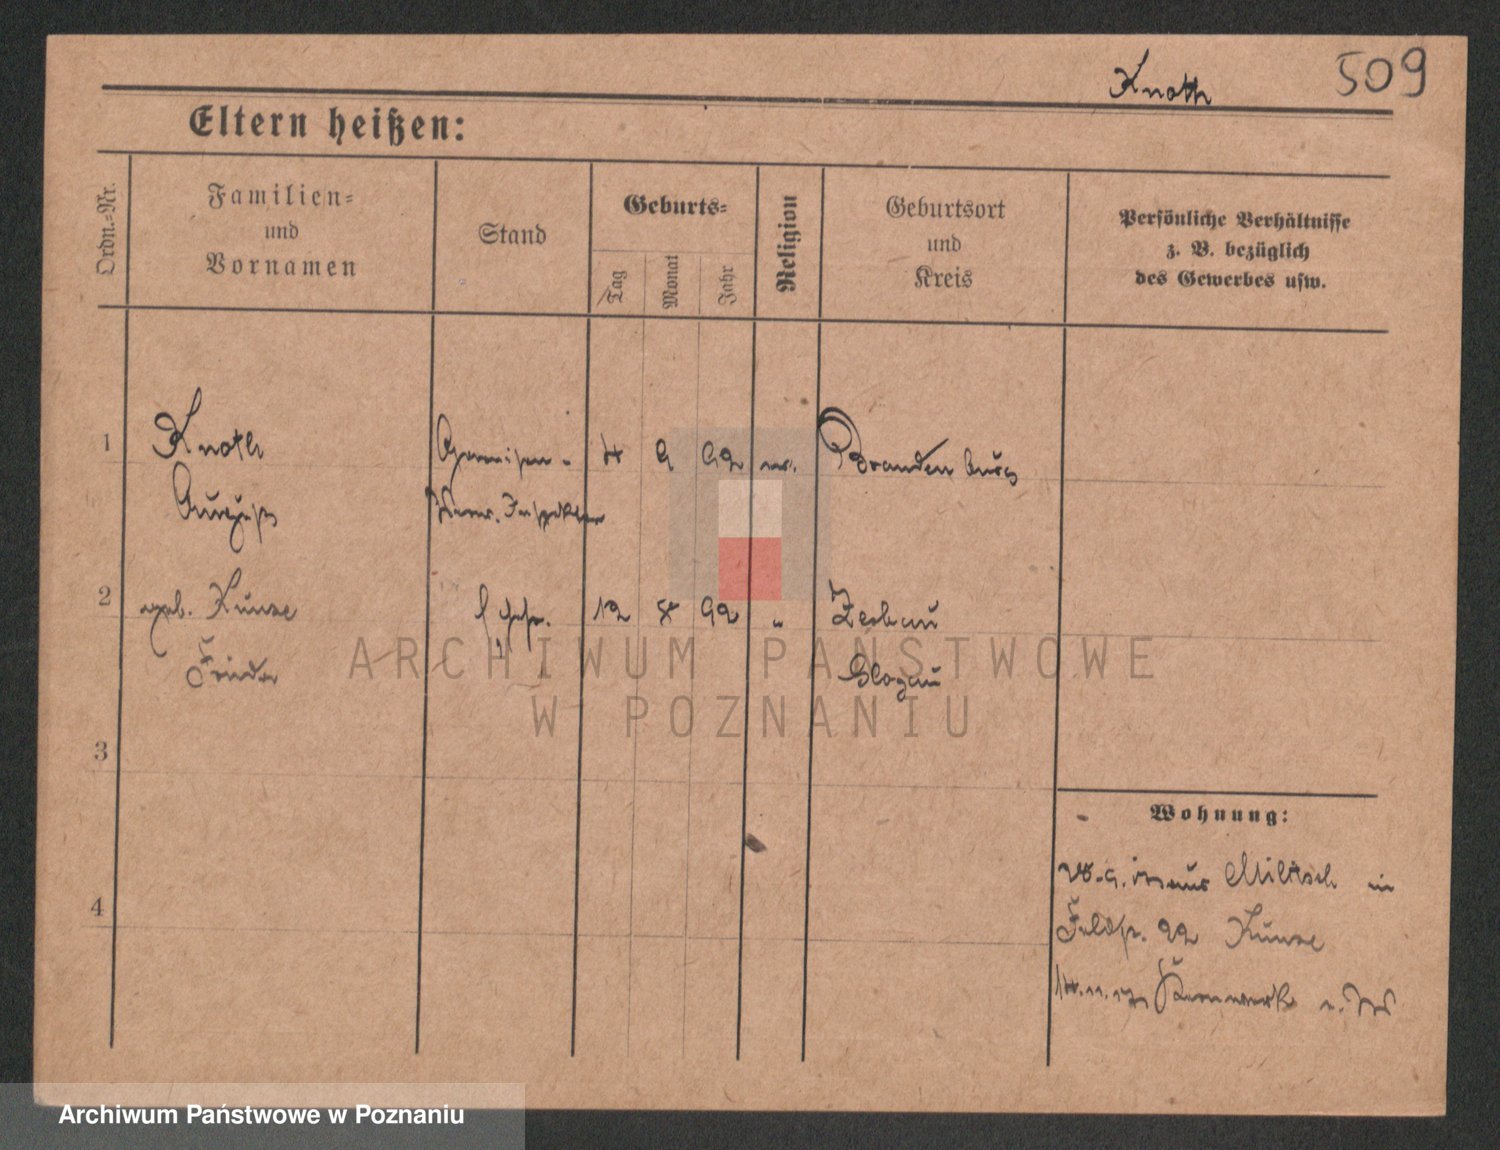 Knoth 509
Eltern heißen:
Ordn.-Nr.
Familien-
und
Vornamen
Stand
Geburts-
Tag
Monat
Jahr
Religion
Geburtsort
und
Kreis
Persönliche Verhältnisse
z. B. bezüglich
des Gewerbes usw.
1 Knoth Garnison- 9 92 Brandenburg
August Verw. Inspektor
2 geb. Kunze Ehefr. 12 8 92 " Zerbau
Frieda Glogau
3
4
Wohnung:
Militsch in
22 Kunze
Kernwerk
ARCHIWUM PAŃSTWOWE
W POZNANIU
Archiwum Państwowe w Poznaniu